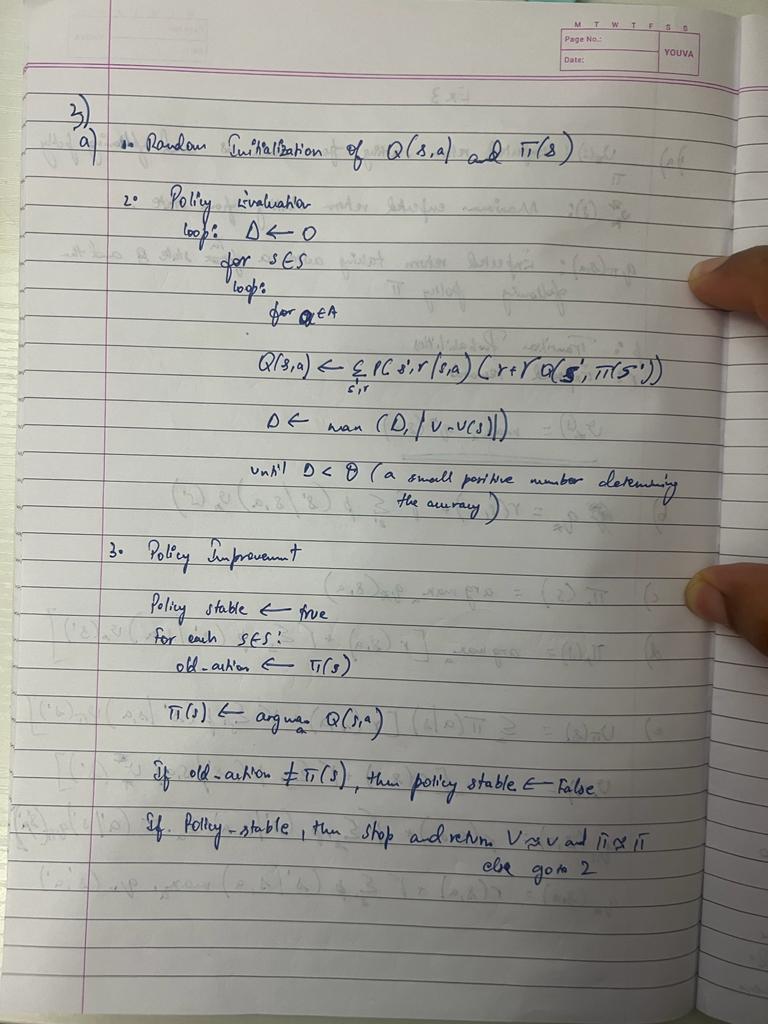 M T W T F S S
Page No.:
YOUVA
Date:
3)
a) 1. Random Initialization of Q(s,a) and π(s)
2. Policy Evaluation
loop: Δ ← 0
for s∈S
loop:
for a∈A
Q(s,a) ← Σ_{s',r} P(s',r/s,a) (r+γ Q(s', π(s'))
Δ ← max (Δ, |v-v(s)|)
until Δ < θ (a small positive number determining
the accuracy)
3. Policy Improvement
Policy stable ← true
For each s∈S:
old-action ← π(s)
π(s) ← argmax_a Q(s,a)
If old-action ≠ π(s), then policy stable ← False
If Policy-stable, then stop and return V≈v and π≈π
else go to 2